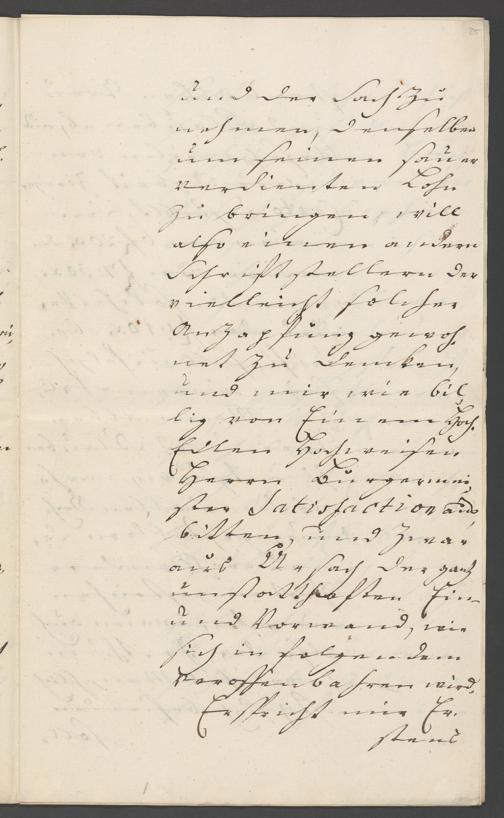 und der Sach zu
nehmen, denselben
um seinen sauer
verdienten Lohn
zu bringen, will
also einen andern
Schriftstellern der
vielleicht solcher
Anzapfung gewoh-
net zu dencken,
und mir wie bil,
lig von Einem Hoch-
Edlen Hochweisen
Herrn Burgermei,
ster Satisfaction aus
bitten, und zwar
aus Ursach der gantz
unstatthaften Ein-
und Vorwand, wie
sich in folgendem
veroffenbahren wird.
Er spricht mir Er-
stens